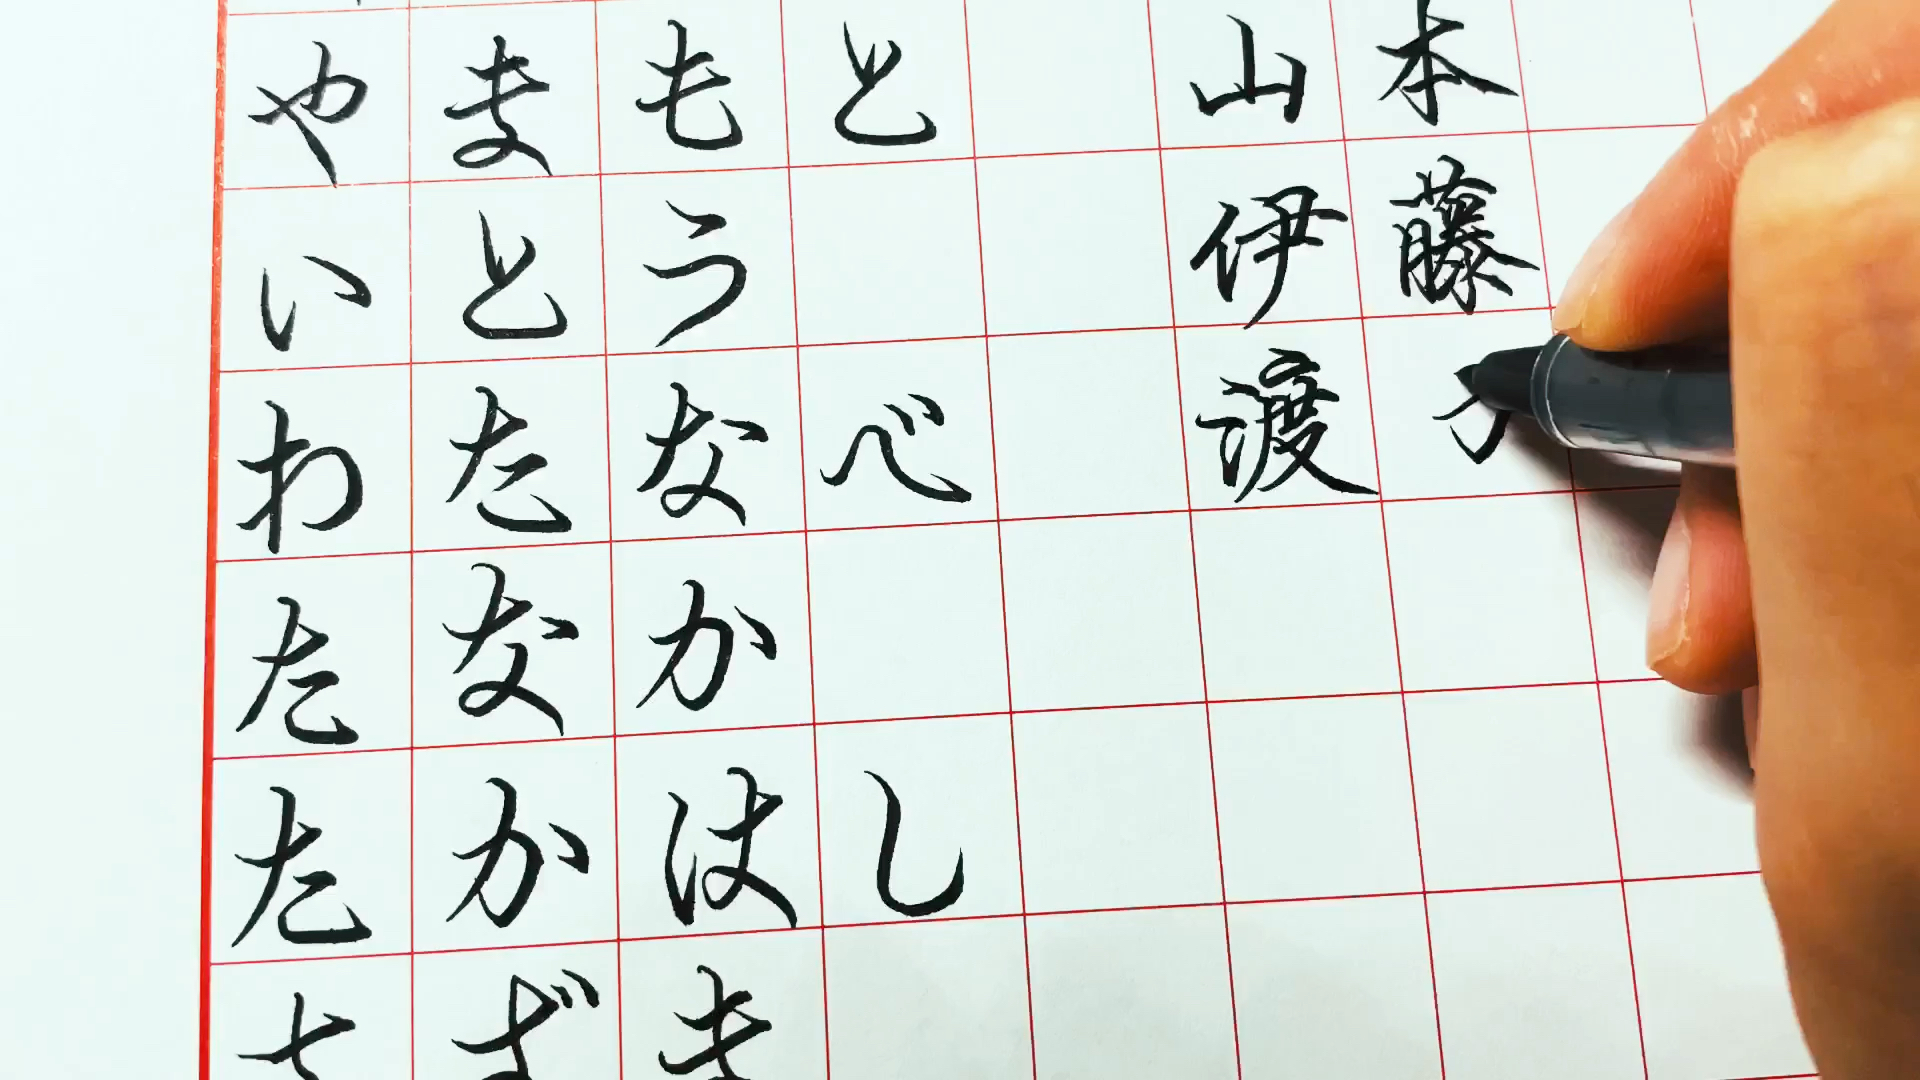 やまもと 山本
いとう 伊藤
わたなべ 渡
たなか
たかはし